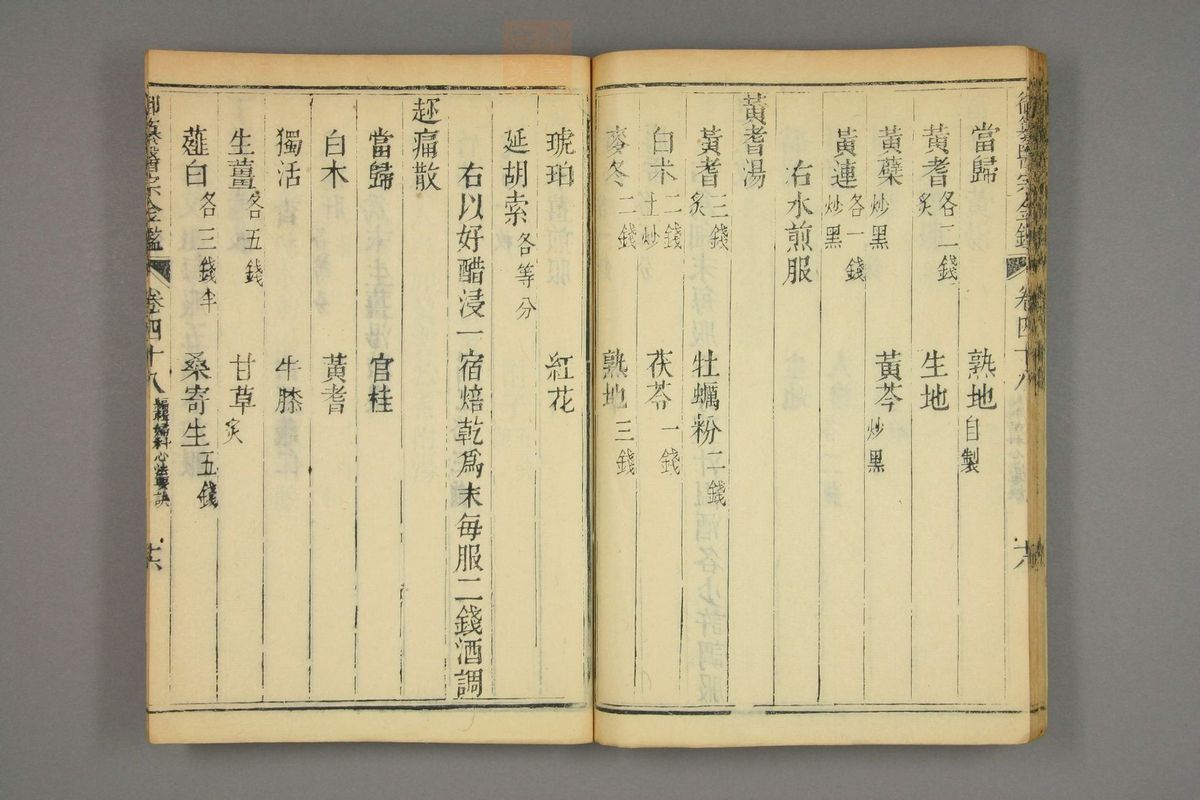 當歸 熟地自製
黃耆各二錢炙 生地
黃蘗炒黑 黃芩炒黑
黃連各一錢炒黑
右水煎服
黃耆湯
黃耆三錢炙 牡蠣粉二錢
白朮二錢土炒 茯苓一錢
麥冬二錢 熟地三錢
琥珀 紅花
延胡索各等分
右以好醋浸一宿焙乾爲末每服二錢酒調
趂痛散
當歸 官桂
白木 黃耆
獨活 牛膝
生薑各五錢 甘草炙
薤白各三錢半 桑寄生五錢
御纂醫宗金鑑 卷四十八 編輯婦科心法要訣